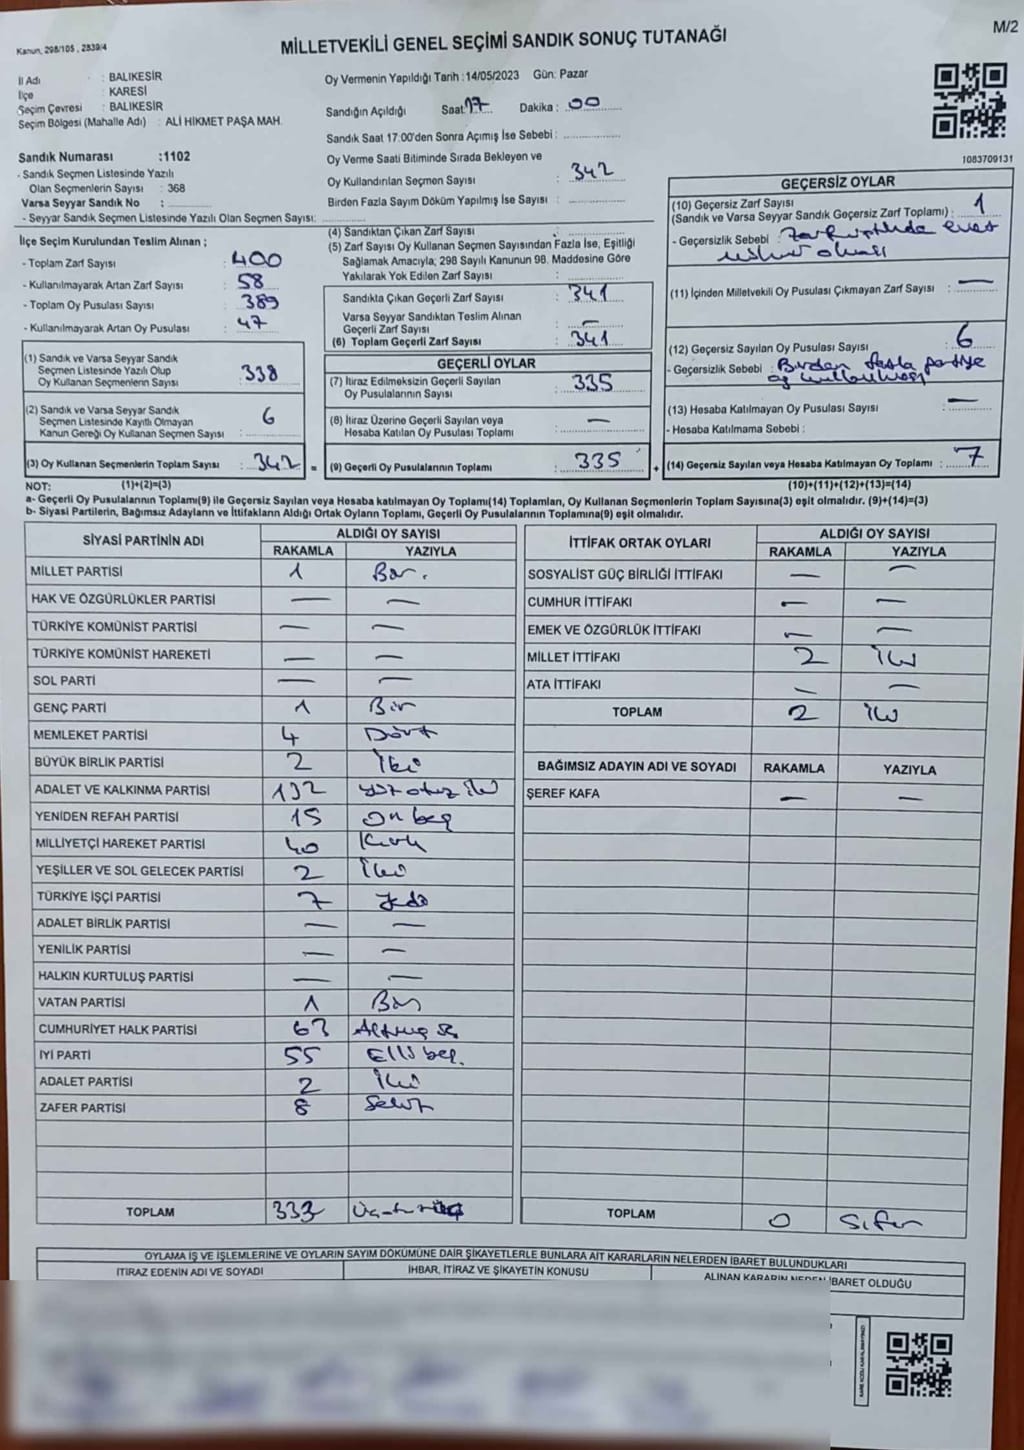 Kanun, 298/105 , 2839/4
MİLLETVEKİLİ GENEL SEÇİMİ SANDIK SONUÇ TUTANAĞI
M/2
İl Adı : BALIKESİR
İlçe : KARESİ
Seçim Çevresi : BALIKESİR
Seçim Bölgesi (Mahalle Adı) : ALİ HİKMET PAŞA MAH.
Sandık Numarası :1102
- Sandık Seçmen Listesinde Yazılı
Olan Seçmenlerin Sayısı : 368
Varsa Seyyar Sandık No :
- Seyyar Sandık Seçmen Listesinde Yazılı Olan Seçmen Sayısı:
Oy Vermenin Yapıldığı Tarih :14/05/2023 Gün: Pazar
Sandığın Açıldığı Saat: 17 Dakika : 00
Sandık Saat 17.00'den Sonra Açılmış İse Sebebi :
Oy Verme Saati Bitiminde Sırada Bekleyen ve
Oy Kullandırılan Seçmen Sayısı : 342
Birden Fazla Sayım Döküm Yapılmış İse Sayısı :
1083709131
İlçe Seçim Kurulundan Teslim Alınan ;
- Toplam Zarf Sayısı : 400
- Kullanılmayarak Artan Zarf Sayısı : 58
- Toplam Oy Pusulası Sayısı : 389
- Kullanılmayarak Artan Oy Pusulası : 47
(1) Sandık ve Varsa Seyyar Sandık
Seçmen Listesinde Yazılı Olup
Oy Kullanan Seçmenlerin Sayısı : 338
(2) Sandık ve Varsa Seyyar Sandık
Seçmen Listesinde Kayıtlı Olmayan
Kanun Gereği Oy Kullanan Seçmen Sayısı : 6
(3) Oy Kullanan Seçmenlerin Toplam Sayısı : 342 =
(4) Sandıktan Çıkan Zarf Sayısı :
(5) Zarf Sayısı Oy Kullanan Seçmen Sayısından Fazla İse, Eşitliği
Sağlamak Amacıyla; 298 Sayılı Kanunun 98. Maddesine Göre
Yakılarak Yok Edilen Zarf Sayısı :
Sandıkta Çıkan Geçerli Zarf Sayısı : 341
Varsa Seyyar Sandıktan Teslim Alınan
Geçerli Zarf Sayısı : —
(6) Toplam Geçerli Zarf Sayısı : 341
GEÇERLİ OYLAR
(7) İtiraz Edilmeksizin Geçerli Sayılan
Oy Pusulalarının Sayısı : 335
(8) İtiraz Üzerine Geçerli Sayılan veya
Hesaba Katılan Oy Pusulası Toplamı : —
(9) Geçerli Oy Pusulalarının Toplamı : 335 +
GEÇERSİZ OYLAR
(10) Geçersiz Zarf Sayısı
(Sandık ve Varsa Seyyar Sandık Geçersiz Zarf Toplamı) : 1
- Geçersizlik Sebebi : Zarf üstünde evet
mührü olması
(11) İçinden Milletvekili Oy Pusulası Çıkmayan Zarf Sayısı : —
(12) Geçersiz Sayılan Oy Pusulası Sayısı : 6
- Geçersizlik Sebebi : Birden fazla partiye
oy kullanılması
(13) Hesaba Katılmayan Oy Pusulası Sayısı : —
- Hesaba Katılmama Sebebi :
(14) Geçersiz Sayılan veya Hesaba Katılmayan Oy Toplamı : 7
NOT: (1)+(2)=(3) (10)+(11)+(12)+(13)=(14)
a- Geçerli Oy Pusulalarının Toplamı(9) ile Geçersiz Sayılan veya Hesaba katılmayan Oy Toplamı(14) Toplamları, Oy Kullanan Seçmenlerin Toplam Sayısına(3) eşit olmalıdır. (9)+(14)=(3)
b- Siyasi Partilerin, Bağımsız Adayların ve İttifakların Aldığı Ortak Oyların Toplamı, Geçerli Oy Pusulalarının Toplamına(9) eşit olmalıdır.
SİYASİ PARTİNİN ADI ALDIĞI OY SAYISI
RAKAMLA YAZIYLA
MİLLET PARTİSİ 1 Bir.
HAK VE ÖZGÜRLÜKLER PARTİSİ — —
TÜRKİYE KOMÜNİST PARTİSİ — —
TÜRKİYE KOMÜNİST HAREKETİ — —
SOL PARTİ — —
GENÇ PARTİ 1 Bir
MEMLEKET PARTİSİ 4 Dört
BÜYÜK BİRLİK PARTİSİ 2 İki
ADALET VE KALKINMA PARTİSİ 132 yüz otuz iki
YENİDEN REFAH PARTİSİ 15 On beş
MİLLİYETÇİ HAREKET PARTİSİ 40 Kırk
YEŞİLLER VE SOL GELECEK PARTİSİ 2 İki
TÜRKİYE İŞÇİ PARTİSİ 7 Yedi
ADALET BİRLİK PARTİSİ — —
YENİLİK PARTİSİ — —
HALKIN KURTULUŞ PARTİSİ — —
VATAN PARTİSİ 1 Bir
CUMHURİYET HALK PARTİSİ 63 Altmış üç
İYİ PARTİ 55 Elli beş.
ADALET PARTİSİ 2 İki
ZAFER PARTİSİ 8 Sekiz
TOPLAM 333
İTTİFAK ORTAK OYLARI ALDIĞI OY SAYISI
RAKAMLA YAZIYLA
SOSYALİST GÜÇ BİRLİĞİ İTTİFAKI — —
CUMHUR İTTİFAKI — —
EMEK VE ÖZGÜRLÜK İTTİFAKI — —
MİLLET İTTİFAKI 2 İki
ATA İTTİFAKI — —
TOPLAM 2 İki
BAĞIMSIZ ADAYIN ADI VE SOYADI RAKAMLA YAZIYLA
ŞEREF KAFA — —
TOPLAM 0 Sıfır
OYLAMA İŞ VE İŞLEMLERİNE VE OYLARIN SAYIM DÖKÜMÜNE DAİR ŞİKAYETLERLE BUNLARA AİT KARARLARIN NELERDEN İBARET BULUNDUKLARI
İTİRAZ EDENİN ADI VE SOYADI İHBAR, İTİRAZ VE ŞİKAYETİN KONUSU ALINAN KARARIN NEDEN İBARET OLDUĞU